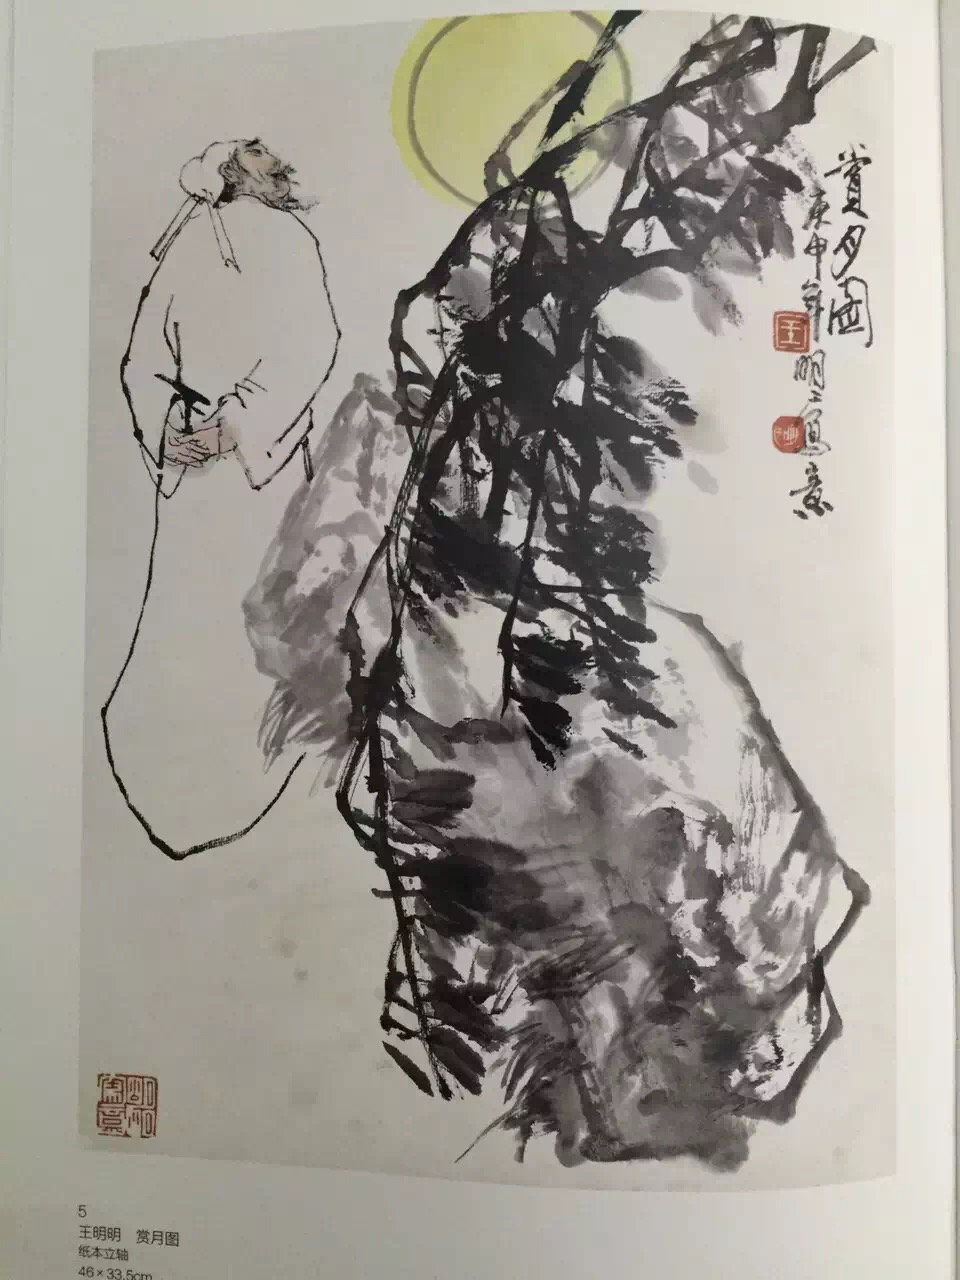 赏月图
庚申年明明写意
王
5
王明明 赏月图
纸本立轴
46×33.5cm